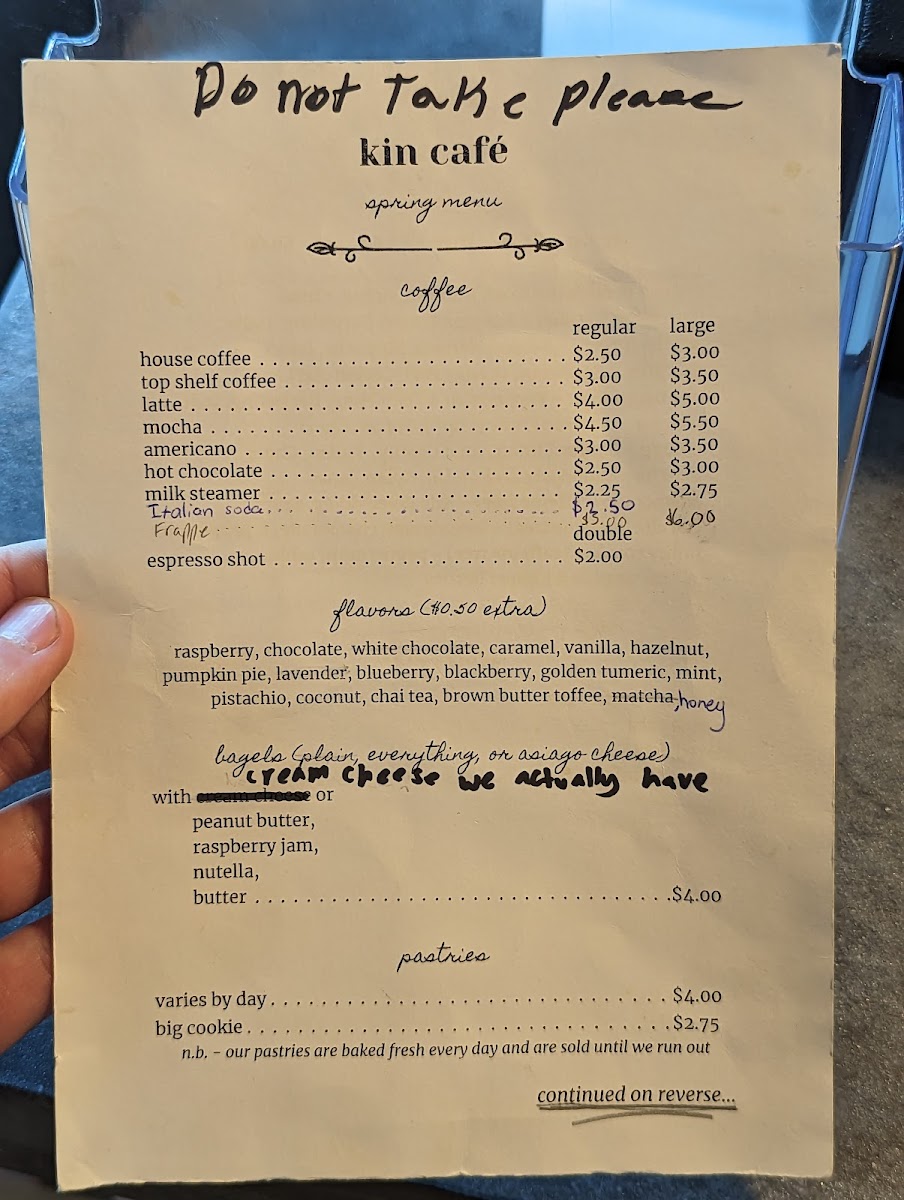 Do not Take please
kin café
spring menu
coffee
regular large
house coffee . . . . . . . . . . . . . . . . . . . . . . . . $2.50 $3.00
top shelf coffee . . . . . . . . . . . . . . . . . . . . . . $3.00 $3.50
latte . . . . . . . . . . . . . . . . . . . . . . . . . . . . . $4.00 $5.00
mocha . . . . . . . . . . . . . . . . . . . . . . . . . . . . $4.50 $5.50
americano . . . . . . . . . . . . . . . . . . . . . . . . . $3.00 $3.50
hot chocolate . . . . . . . . . . . . . . . . . . . . . . . $2.50 $3.00
milk steamer . . . . . . . . . . . . . . . . . . . . . . . $2.25 $2.75
Italian soda . . . . . . . . . . . . $2.50
Frappe . . . . . . . . . . . . $5.00 $6.00
double
espresso shot . . . . . . . . . . . . . . . . . . . . . . . $2.00
flavors ($0.50 extra)
raspberry, chocolate, white chocolate, caramel, vanilla, hazelnut,
pumpkin pie, lavender, blueberry, blackberry, golden tumeric, mint,
pistachio, coconut, chai tea, brown butter toffee, matcha, honey
bagels (plain, everything, or asiago cheese)
cream cheese we actually have
with cream cheese or
peanut butter,
raspberry jam,
nutella,
butter . . . . . . . . . . . . . . . . . . . . . . . . . . . . . . . . . $4.00
pastries
varies by day . . . . . . . . . . . . . . . . . . . . . . . . . . . . . . . $4.00
big cookie . . . . . . . . . . . . . . . . . . . . . . . . . . . . . . . . . $2.75
n.b. - our pastries are baked fresh every day and are sold until we run out
continued on reverse...